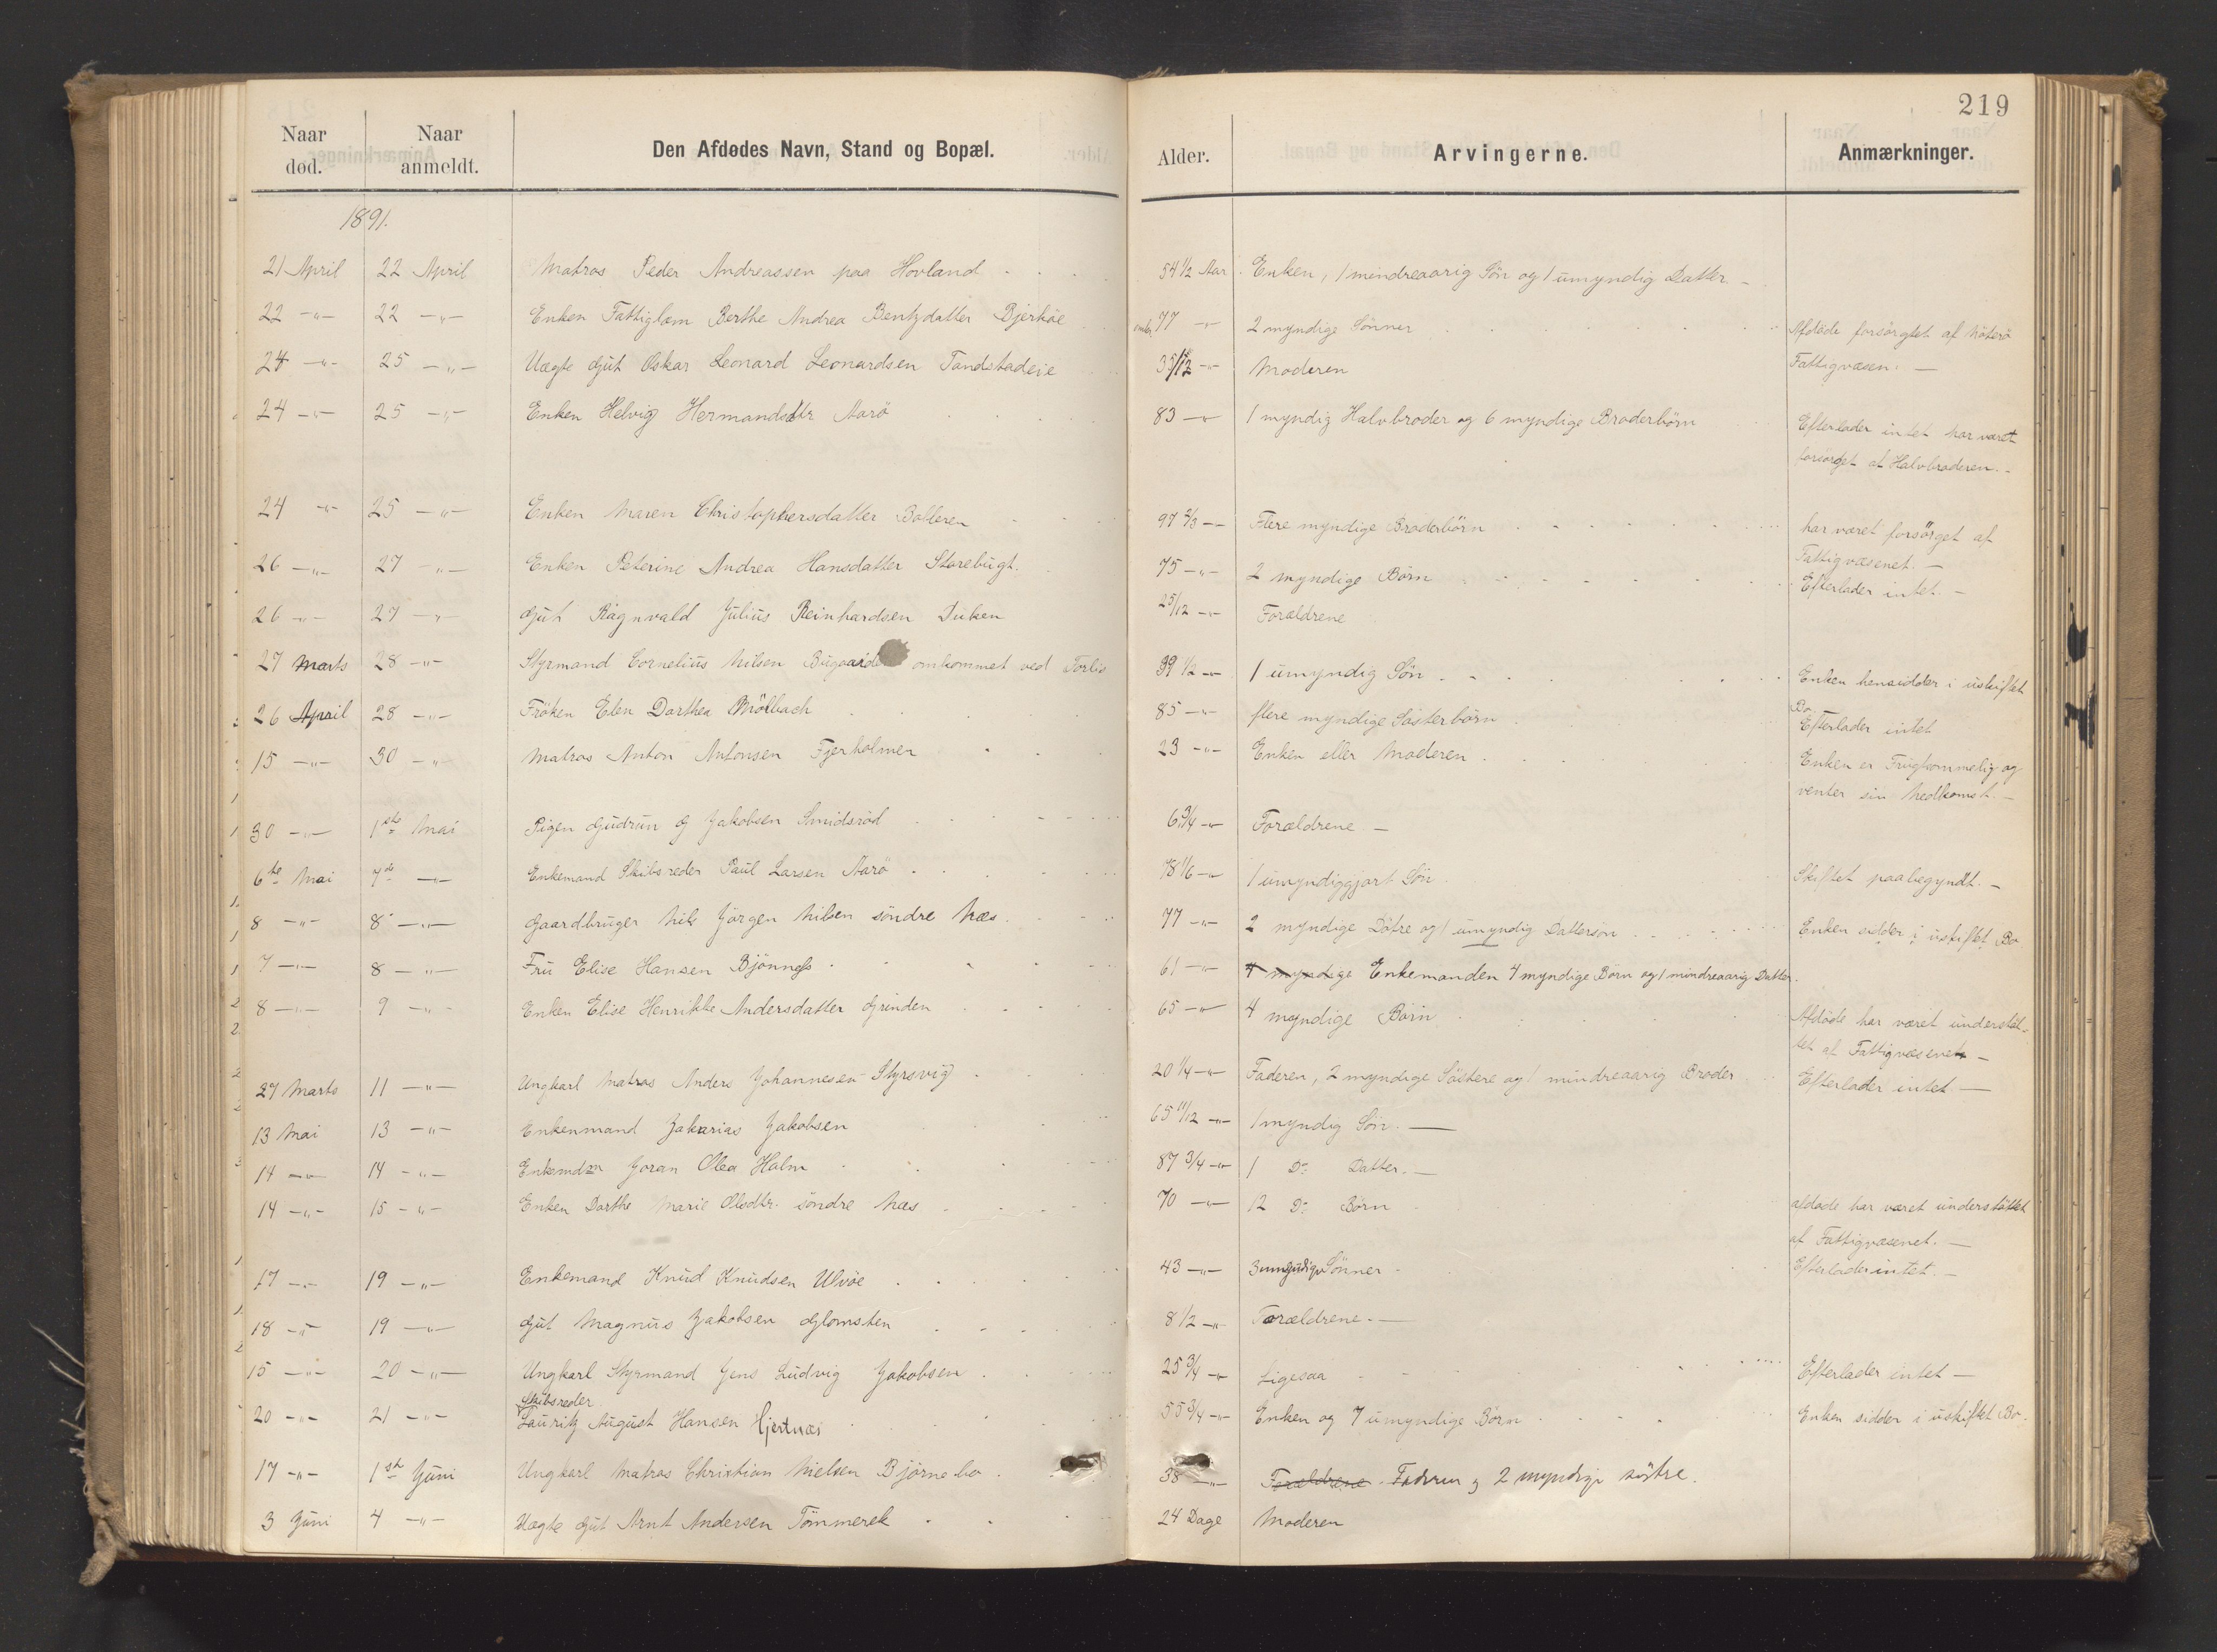 219
Naar død. Naar anmeldt. Den Afdødes Navn, Stand og Bopæl. Alder. Arvingerne. Anmærkninger.
1891.
21 April 22 April Matros Peder Andreassen paa Hovland 54 1/2 Aar Enken, 1 mindreaarig Sön og 1 umyndig Datter. -
22 -"- 22 -"- Enken Fattiglem Berthe Andrea Bentzdatter Bjerköe 77 -"- 2 myndige Sönner Afdöde forsörgtet af Nöterö
24 -"- 25 -"- Uægte Gut Oskar Leonard Leonardsen Tandstadeie 3 5/12 -"- Moderen Fattigvæsen. -
24 -"- 25 -"- Enken Helvig Hermandsdtr Aarö 83 -"- 1 myndig Halvbroder og 6 myndige Broderbörn Efterlader intet har været
forsörget af Halvbroderen. -
24 -"- 25 -"- Enken Maren Christophersdatter Bolleren 97 2/3 -- Flere myndige Broderbörn har været forsörget af
Fattigvæsenet. -
26 -"- 27 -"- Enken Peterine Andrea Hansdatter Storebugt. 75 -"- 2 myndige Börn Efterlader intet. -
26 -"- 27 -"- Gut Ragnvald Julius Reinhardsen Duken 2 5/12 -"- Forældrene
27 Marts 28 -"- Styrmand Cornelius Nilsen Bugaarden omkommet ved Forlis 39 1/2 -"- 1 umyndig Sön Enken hensidder i uskiftet
Bo
26 April 28 -"- Fröken Elen Dorthea Mölbach 85 -"- flere myndige Sösterbörn Efterlader intet
15 -"- 30 -"- Matros Anton Antonsen Fjerholmen 23 -"- Enken eller Moderen Enken er Frugtsommelig og
venter sin Nedkomst. -
30 -"- 1ste Mai Pigen Gudrun G Jakobsen Smidsröd 6 3/4 -"- Forældrene -
6te Mai 7de -"- Enkemand Skibsreder Paul Larsen Aarö 78 1/6 -"- 1 umyndiggjort Sön Skiftet paabegyndt. -
8 -"- 8 -"- Gaardbruger Nils Jörgen Nilsen söndre Næs 77 -"- 2 myndige Dötre og 1 umyndig Datterson Enken sidder i uskiftet Bo
7 -"- 8 -"- Fru Elise Hansen Bjönness 61 -"- 4 myndige Enkemanden 4 myndige Börn og 1 mindreaarig Datter.
8 -"- 9 -"- Enken Elise Henrikke Andersdatter Grinden 65 -"- 4 myndige Börn Afdöde har været understöt-
tet af Fattigvæsenet -
27 Marts 11 -"- Ungkarl Matros Anders Johannesen Styrsvig 20 1/4 -"- Faderen, 2 myndige Söstere og 1 mindreaarig Broder Efterlader intet. -
13 Mai 13 -"- Enkenmand Zakarias Jakobsen 65 11/12 -"- 1 myndig Sön. -
14 -"- 14 -"- Joran Olea Holm 87 3/4 -"- 1 Do Datter. -
14 -"- 15 -"- Enken Dorthe Marie Olsdtr. söndre Næs 70 -"- 12 Do Börn afdöde har været understöttet
af Fattigvæsenet. -
17 -"- 19 -"- Enkemand Knud Knudsen Ulvöe 43 -"- 3 umyndige Sönner Efterlader intet. -
18 -"- 19 -"- Gut Magnus Jakobsen Glomsten 8 1/2 -"- Forældrene. -
15 -"- 20 -"- Ungkarl Styrmand Jens Ludvig Jakobsen 25 3/4 -"- Ligesaa Efterlader intet -
Skibsreder
20 -"- 21 -"- Lauritz August Hansen Hjertnæs 55 3/4 -"- Enken og 7 umyndige Börn Enken sidder i uskiftet Bo.
17 -"- 1ste Juni Ungkarl Matros Christian Nielsen Björnebo 38 -"- Forældrene Faderen og 2 myndige söstre.
3 Juni 4 -"- Uægte Gut Arnt Andersen Tömmerek 24 Dage Moderen